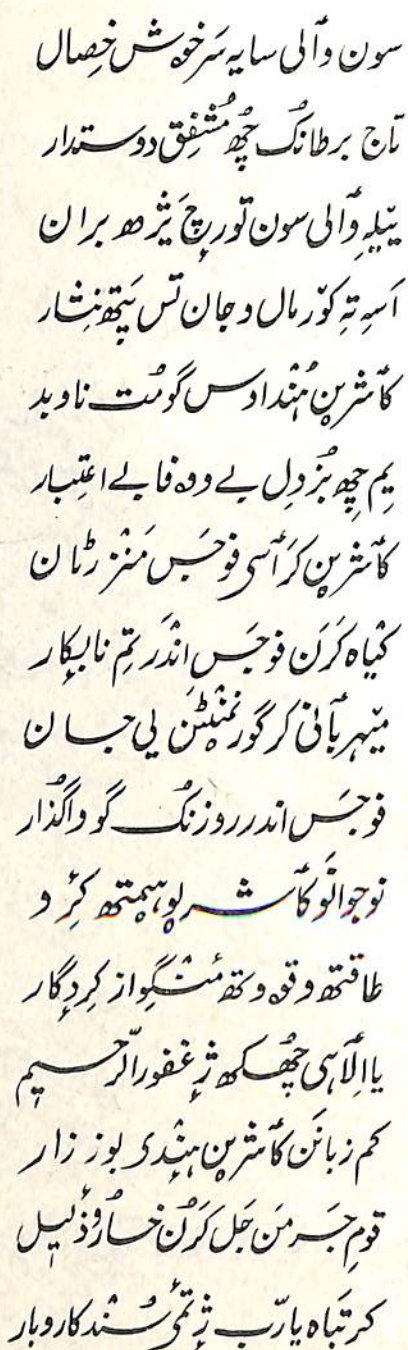 سون وٲلی سایہ سَر خوش خِصال
تاج برطانک چُھ مُشفِق دوستدار
ییلہِ وٲلی سون تورٕچ یَژھ بران
اَسہِ تہِ کوٚر مال و جان تس پؠٹھ نِثار
کٲشرؠن ہُند اوس گومُت ناو بد
یِم چِھ بُزدِل بے وفا بے اعتِبار
کٲشرؠن کَرٲسی فوجَس منٛز رٹان
کٔیاہ کَرَن فوجَس اندَر تِم نابکار
میہربٲنی کر گورنمنٹن یی جان
فوجَس اندر روزنُک گو واگُذار
نوجوانَو کٲشرِیو ہیمتھ کٔر و
طاقتھ و قوتھ مٔنٛگِو از کِردِگار
یا اِلٰاہی چُھکھ ژٕ غفور الرّحیم
کم زبانَن کٲشرؠن ہِنٛدی بوز زار
قومِ جَرمَن جَل کَرُن خار و ذٔلیل
کر تَباہ یا ربّ ژٕ تٔمی سُند کاروبار